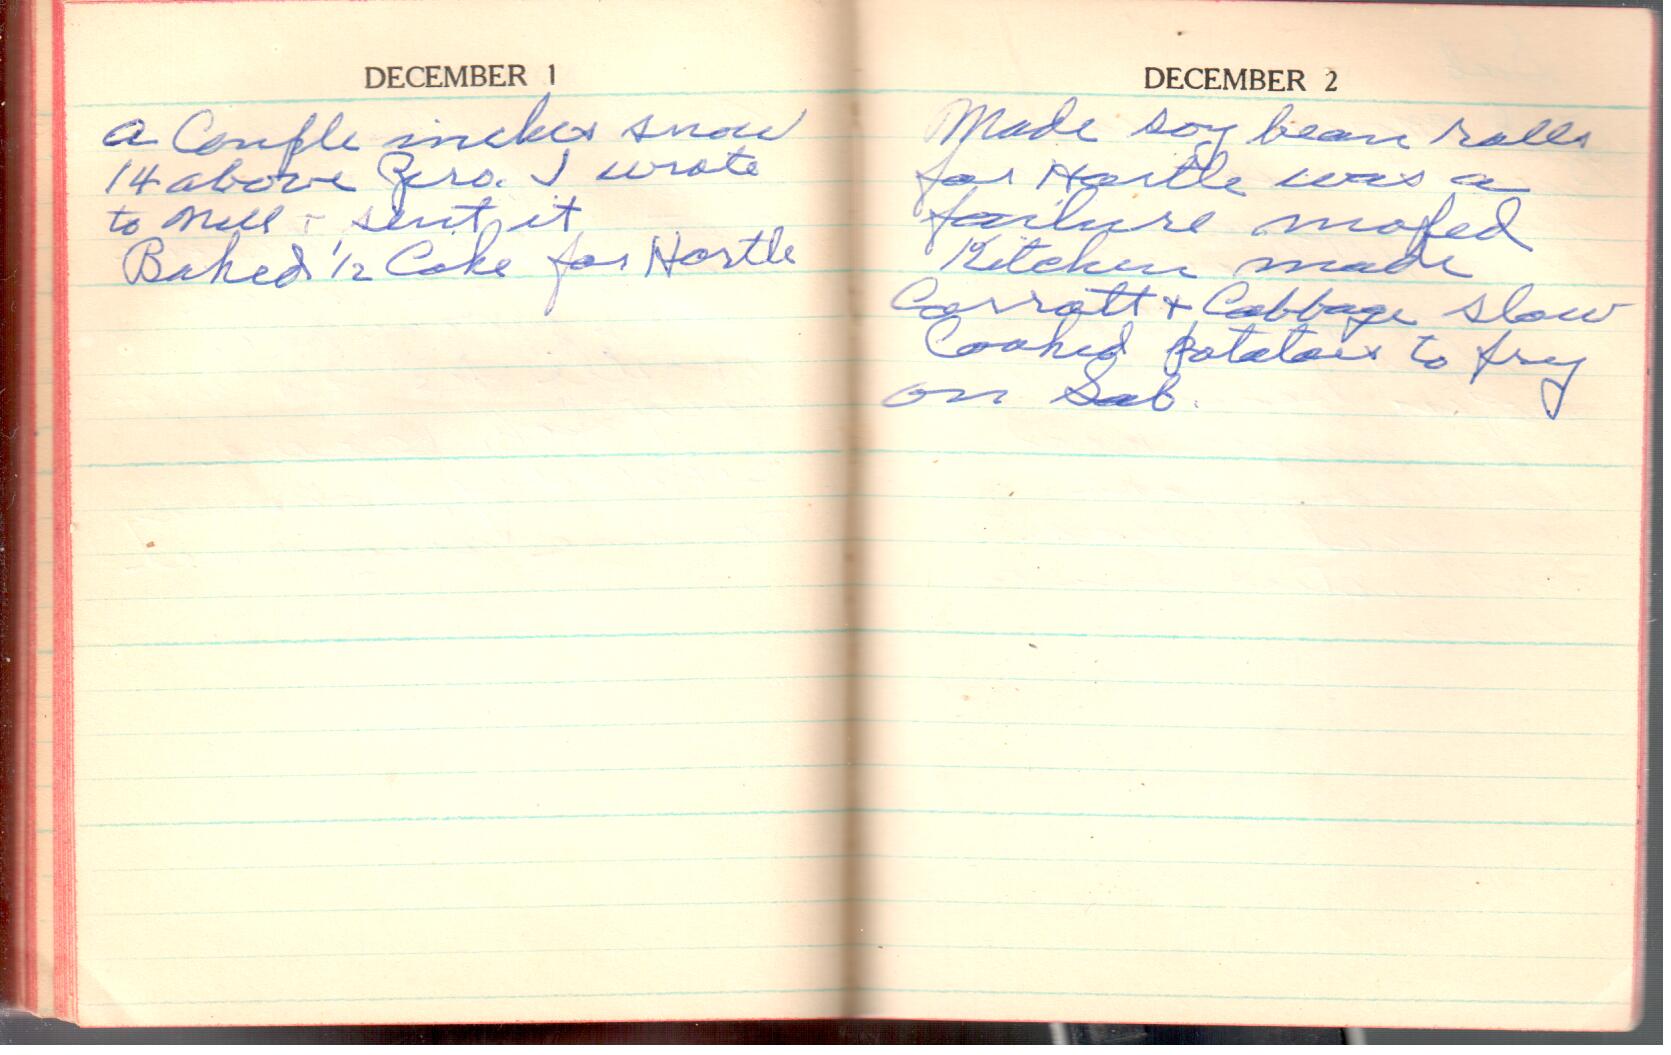 DECEMBER 1
a Couple inches snow
14 above Zero. I wrote
to Nell + sent it
Baked 1/2 Cake for Hortle
DECEMBER 2
Made soy bean rolls
for Hortle was a
failure moped
Kitchen made
Carrott + Cabbage slow
Cooked potatoes to fry
on Sab.